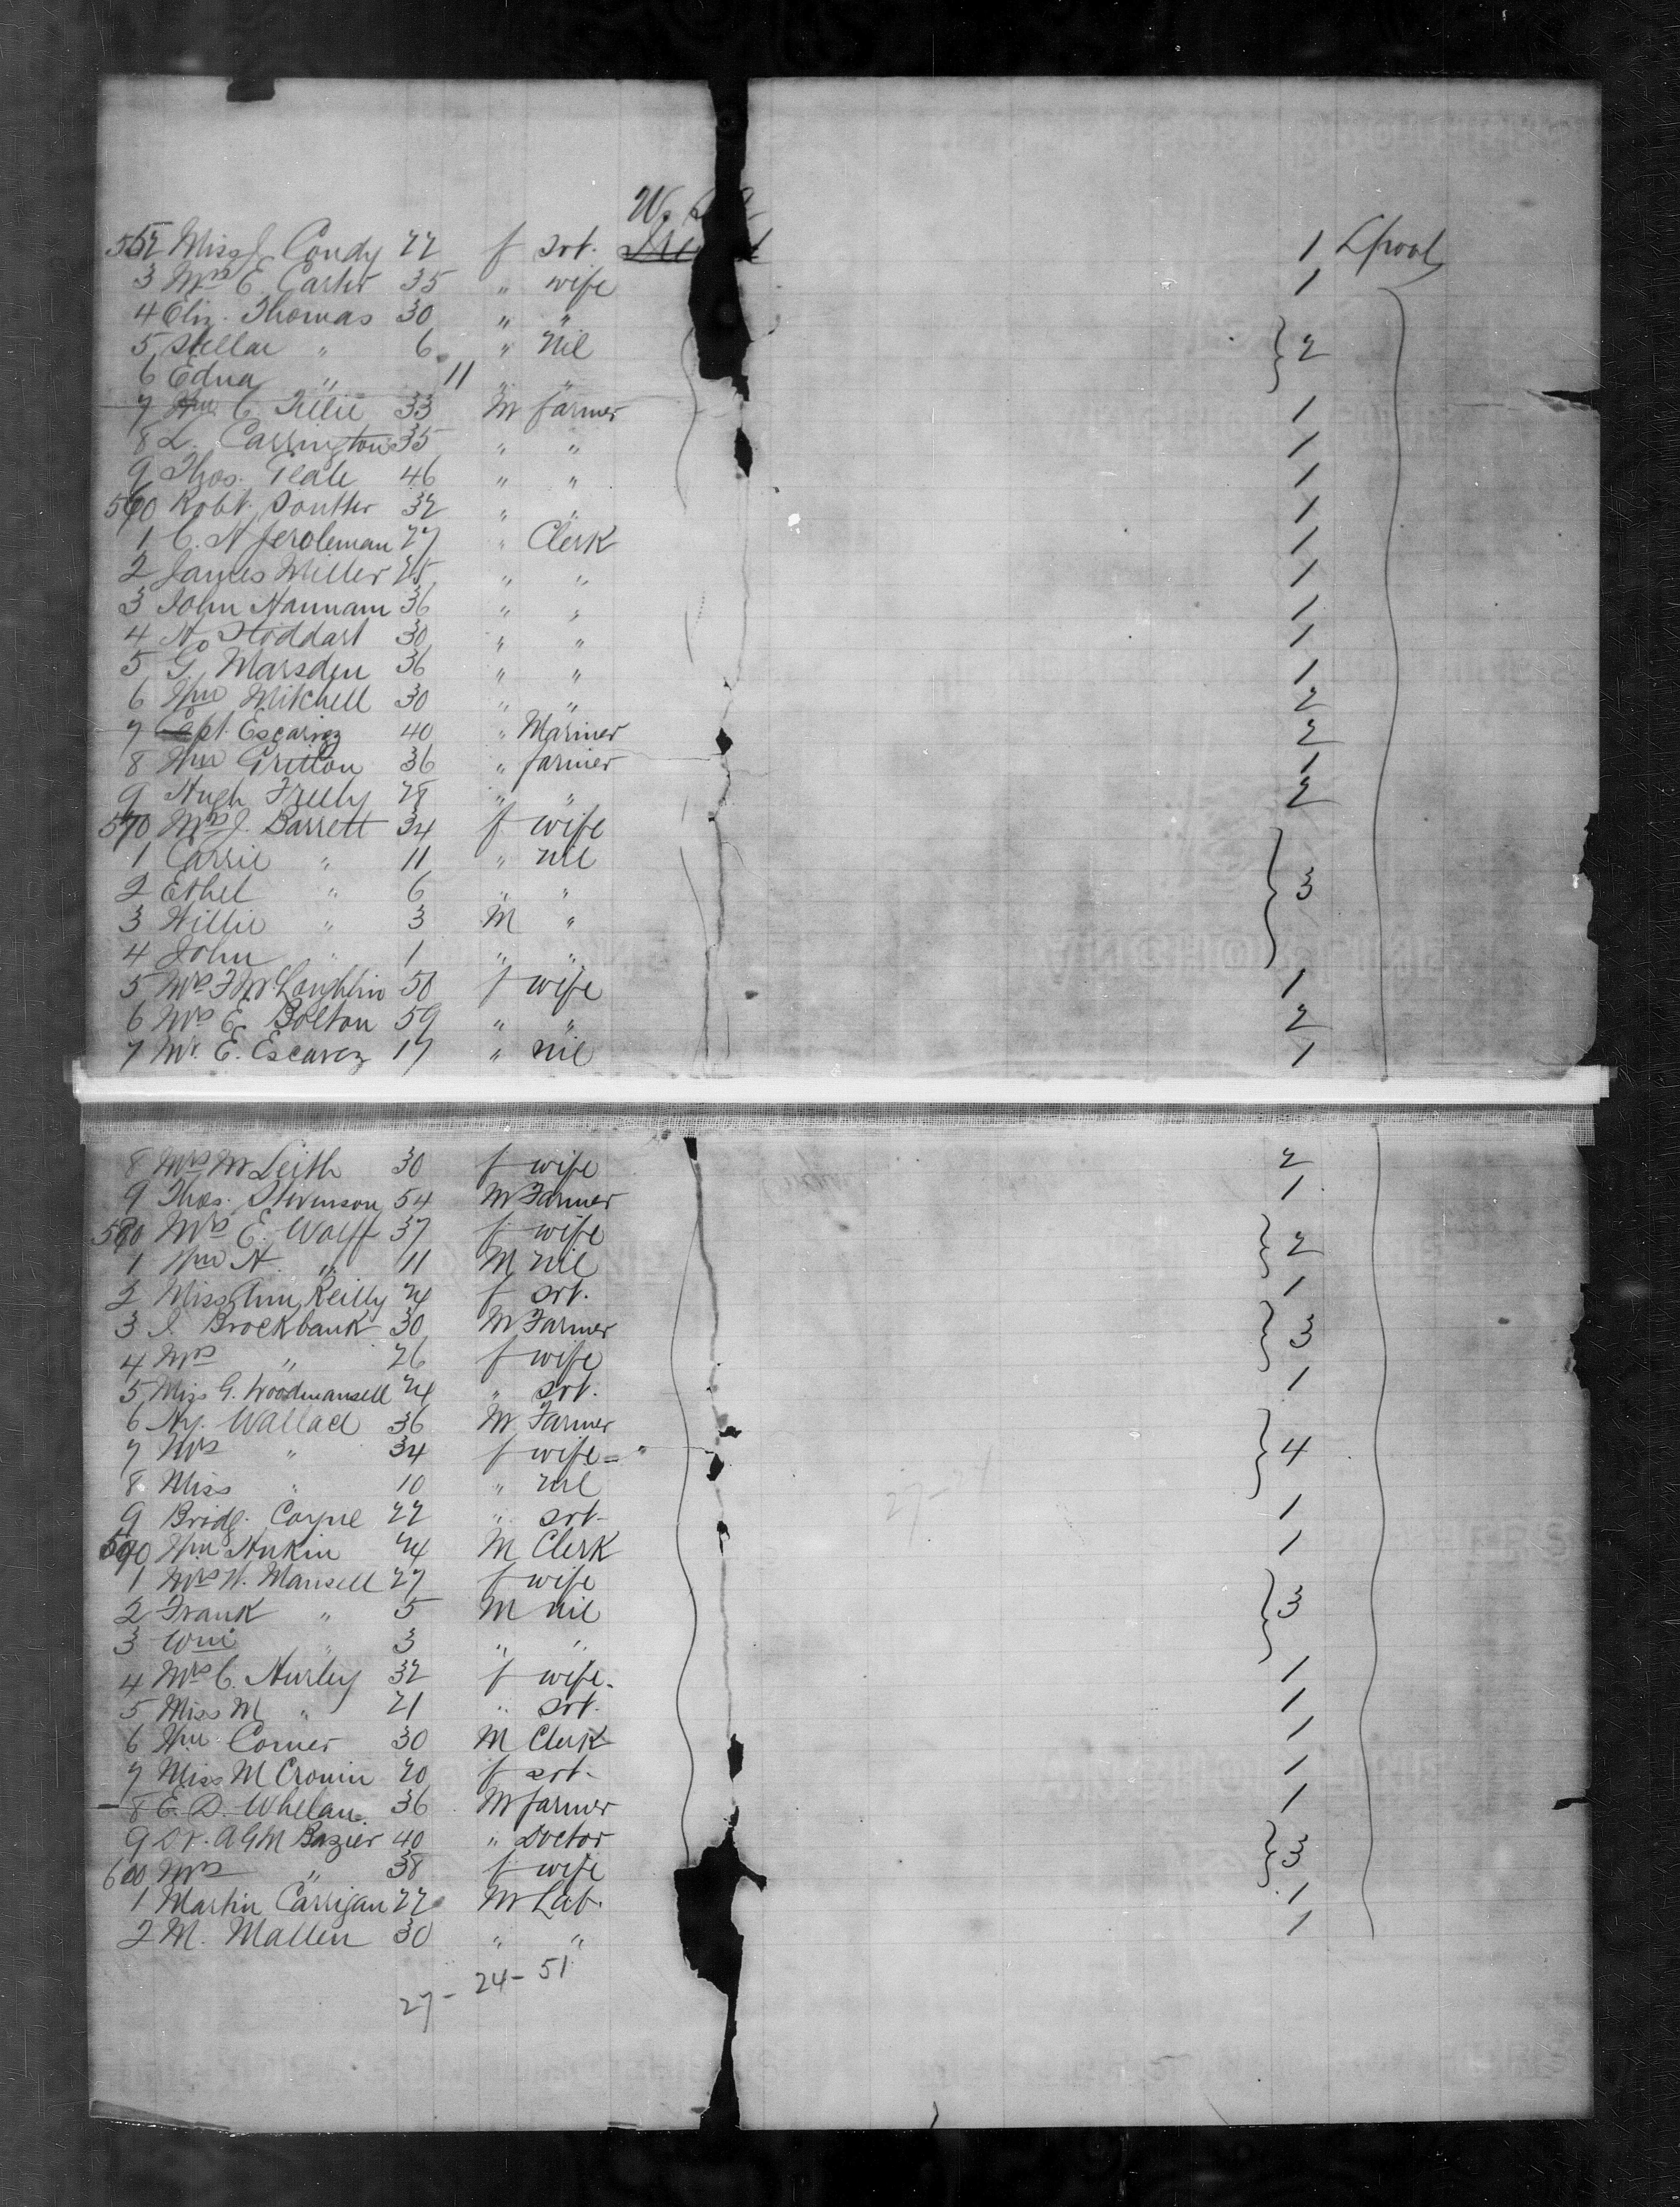 W. S. A
552 Miss J. Condy 22 f srt. 1 Lpool
3 Mrs E. Carter 35 " wife 1
4 Eliz. Thomas 30 " "
5 Stellar " 6 " nil 2
6 Edna " 11 " "
7 Wm C. Tillie 33 M farmer 1
8 L. Carrington 35 " " 1
9 Thos. Teale 46 " " 1
560 Robt. Soutter 32 " " 1
1 C. N Jeroleman 27 " Clerk 1
2 James Miller 25 " " 1
3 John Hannam 36 " " 1
4 A. Stoddart 30 " " 1
5 G. Marsden 36 " " 1
6 Wm Mitchell 30 " " 2
7 Capt. Escarez 40 " Mariner 2
8 Wm Gritton 36 " farmer 1
9 Hugh Freely 28 " " 2
570 Mrs J. Barrett 34 f wife
1 Carrie " 11 " nil
2 Ethel " 6 " " 3
3 Willie " 3 M "
4 John " 1 " "
5 Mrs F McLoughlin 50 f wife 1
6 Mrs E. Bolton 59 " " 2
7 Mr. E. Escarez 17 " nil 1
8 Mrs M Leith 30 f wife 2
9 Thos. Stevenson 54 M Farmer 1
580 Mrs E. Wolff 37 f wife 2
1 Wm H. " 11 M nil
2 Miss Ann Reilly 24 f srt. 1
3 J Brockbank 30 M Farmer 3
4 Mrs " 26 f wife
5 Miss G. Woodmansell 24 " srt. 1
6 Hy. Wallace 36 M Farmer
7 Mrs " 34 f wife = " 4
8 Miss " 10 " nil
9 Bridg. Coyne 22 " srt- 1
590 Wm Hukin 24 M Clerk 1
1 Mrs H. Mansell 27 f wife
2 Frank " 5 M nil 3
3 Wm " 3 " "
4 Mrs C. Hurley 32 f wife. 1
5 Miss M " 21 " srt. 1
6 Wm Comer 30 M Clerk 1
7 Miss M Cronin 20 f srt- 1
8 E. D. Whelan 36 M farmer 1
9 Dr. A G M Bazier 40 " Doctor 3
600 Mrs " 38 f wife
1 Martin Carrigan 22 M Lab. 1
2 M. Mallen 30 " " 1
27- 24- 51